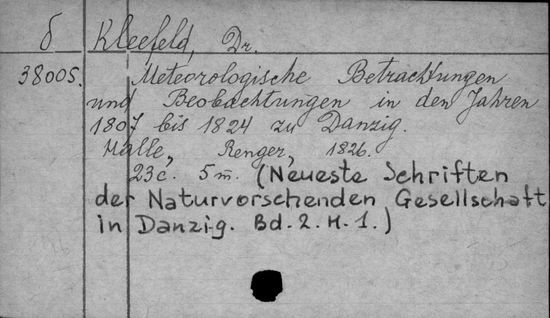 δ Kleefeld, Dr.
3800S. Meteorologische Betrachtungen
und Beobachtungen in den Jahren
1807 bis 1824 zu Danzig.
Halle, Renger, 1826.
23c. 5m. (Neueste Schriften
der Naturvorschenden Gesellschaft
in Danzig. Bd. 2. H. 1.)